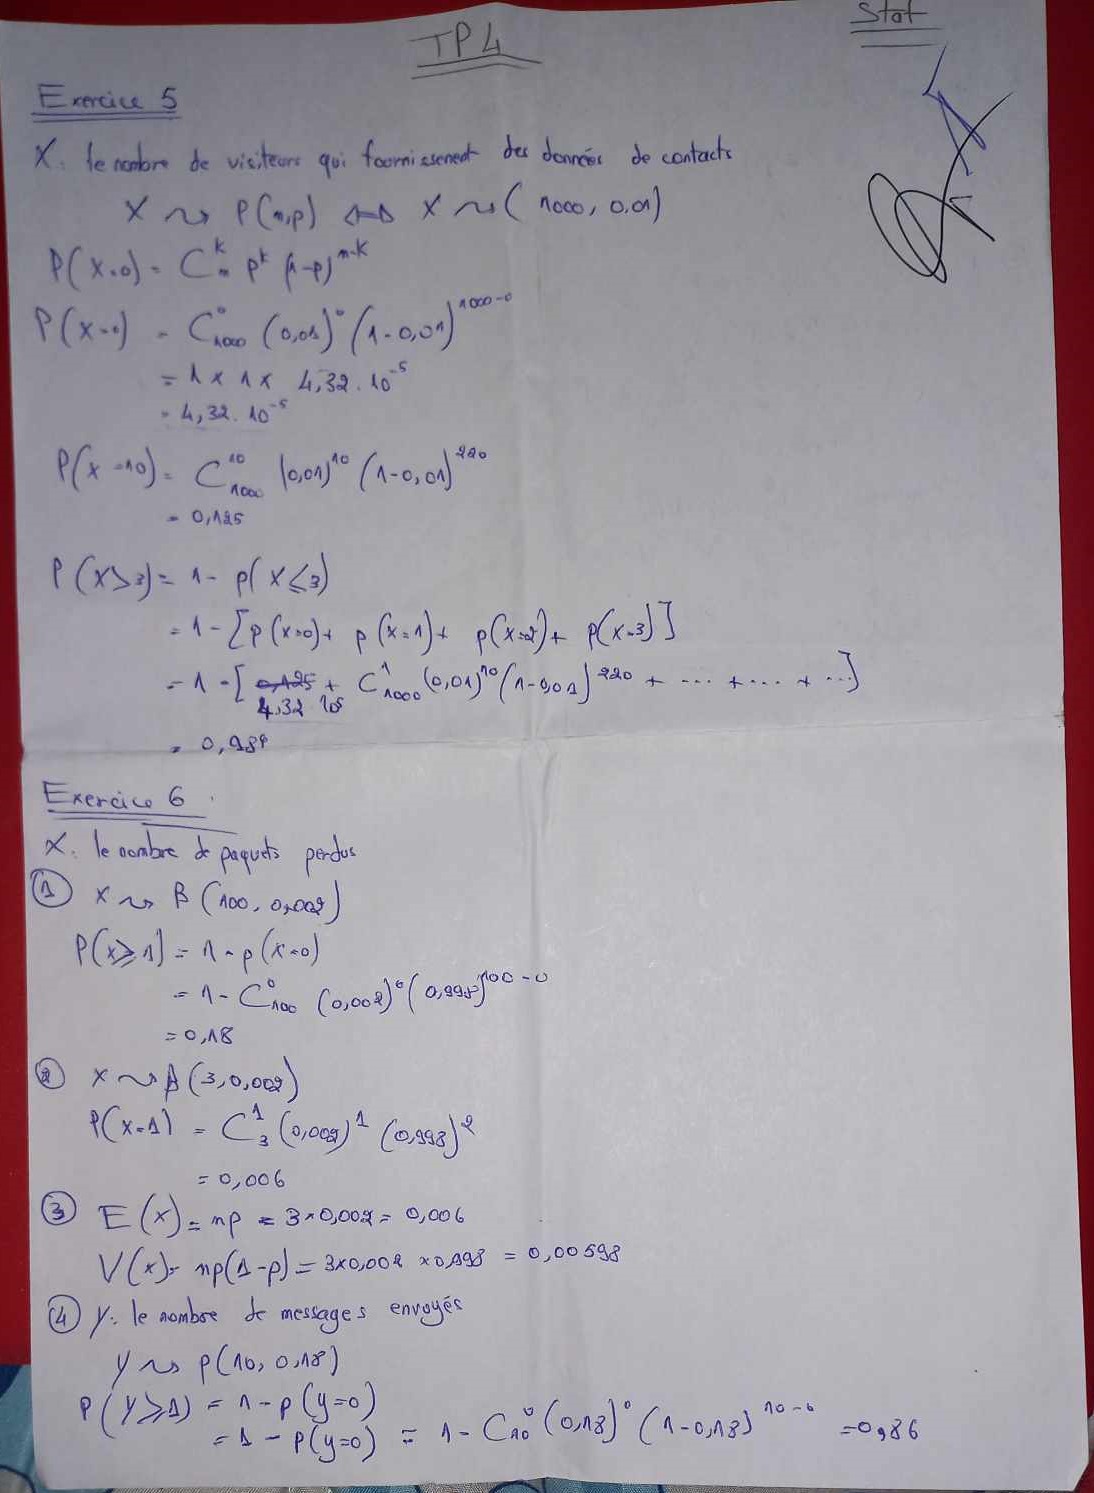 Stat
TP4
Exercice 5
X: le nombre de visiteurs qui fournissenent des données de contacts
X ~> P(n,p) <=> X ~> ( 1000, 0,01)
P(X=0) = C_n^k p^k (1-p)^{n-k}
P(X=0) = C_{1000}^0 (0,01)^0 (1-0,01)^{1000-0}
= 1 x 1 x 4,32 . 10^{-5}
= 4,32 . 10^{-5}
P(X=10) = C_{1000}^{10} (0,01)^{10} (1-0,01)^{220}
= 0,125
P(X>3) = 1 - p(X≤3)
= 1 - [p(X=0) + p(X=1) + p(X=2) + p(X=3)]
= 1 - [ 0,125 + C_{1000}^1 (0,01)^{10} (1-0,01)^{220} + ... + ... + ...]
4,32 10^5
= 0,989
Exercice 6
X: le nombre de paquets perdus
① X ~> B (100, 0,002)
P(X≥1) = 1 - p(X=0)
= 1 - C_{100}^0 (0,002)^0 (0,998)^{100-0}
= 0,18
② X ~> β(3, 0,002)
P(X=1) = C_3^1 (0,002)^1 (0,998)^2
= 0,006
③ E(X) = np = 3×0,002 = 0,006
V(X) = np(1-p) = 3×0,002 ×0,998 = 0,00598
④ Y: le nombre de messages envoyés
Y ~> p(10, 0,18)
P(Y≥1) = 1 - p(y=0)
= 1 - p(y=0) = 1 - C_{10}^0 (0,18)^0 (1-0,18)^{10-0} = 0,86